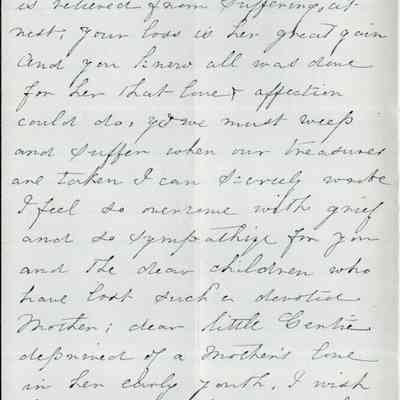 is relieved from suffering, at
rest, your loss is her great gain
And you know all was done
for her that love & affection
could do, yet we must weep
and suffer when our treasures
are taken I can scarcely write
I feel so overcome with grief
and so sympathize for you
and the dear children who
have lost such a devoted
Mother; dear little Gertie
deprived of a Mother's love
in her early youth. I wish